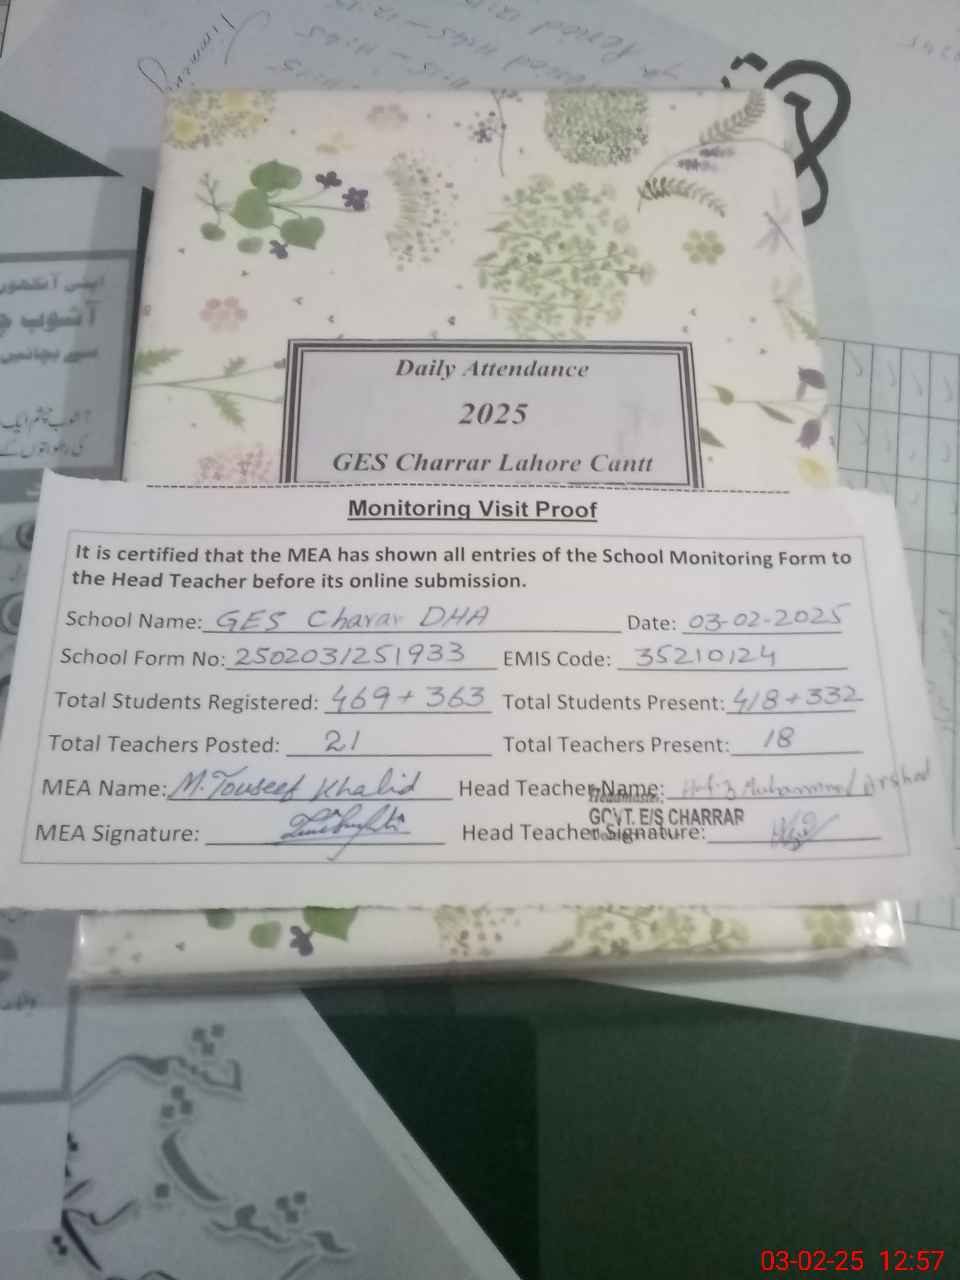 Timing
Daily Attendance
2025
GES Charrar Lahore Cantt
Monitoring Visit Proof
It is certified that the MEA has shown all entries of the School Monitoring Form to
the Head Teacher before its online submission.
School Name: GES Charar DHA Date: 03-02-2025
School Form No: 2502031251933 EMIS Code: 35210124
Total Students Registered: 469 + 363 Total Students Present: 418 + 332
Total Teachers Posted: 21 Total Teachers Present: 18
MEA Name: M. Touseef Khalid Head Teacher Name: Hafiz Muhammad Arshad
Headmaster
GOVT. E/S CHARRAR
MEA Signature: Head Teacher Signature:
اپنی آنکھوں
آشوب
سے بچائیں
03-02-25 12:57